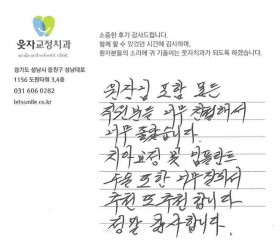 웃자교정치과
소중한 후기 감사드립니다.
함께 할 수 있었던 시간에 감사하며,
환자분들의 소리에 귀 기울이는 웃자치과가 되도록 하겠습니다.
경기도 성남시 중원구 성남대로
1156 도원타워 3,4층
031 606 0282
letsunile.co.kr
원장님 포함 모든
직원분들 너무 친절해서
너무 좋았습니다.
치아교정 및 임플란트
수술 또한 너무 잘해줘서
추천 또 추천 합니다.
정말 감사합니다.